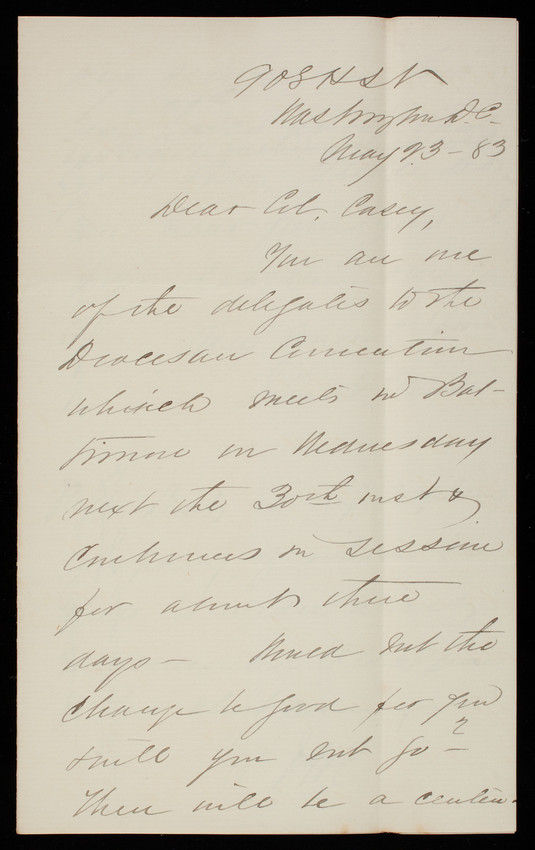 908 H St N
Washington D.C.
May 23 - 83
Dear Col. Casey,
You are one
of the delegates to the
Diocesan Convention
which meets in Bal-
timore on Wednesday
next the 30th inst &
continues in session
for about three
days - Would not the
change be good for you
& will you not go?
There will be a centen-